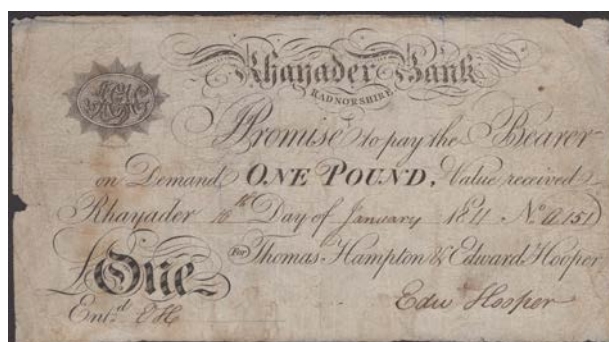 Rhayader Bank
RADNORSHIRE
I Promise to pay the Bearer
on Demand ONE POUND, Value received
Rhayader 16th Day of January 1811 No a151
For Thomas Hampton & Edward Hooper
£One
Edw Hooper
Entd EH